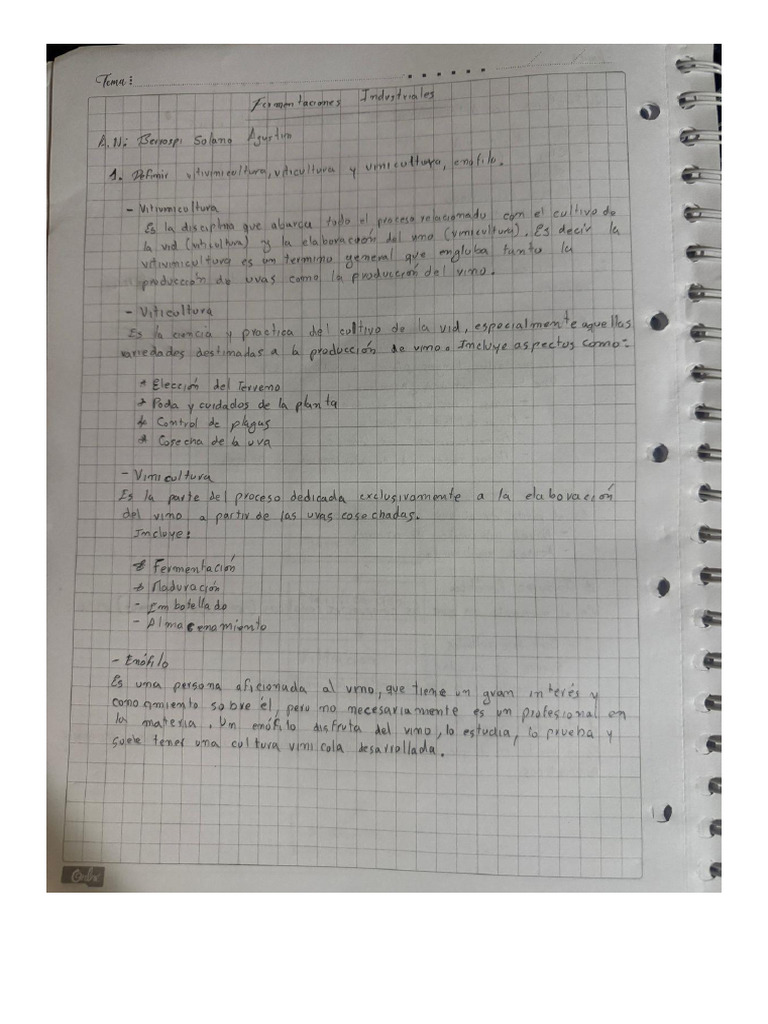 Tema:
Fermentaciones Industriales
A.N: Berrospi Solano Agustin
1. Definir vitivinicultura, viticultura y vinicultura, enofilo.
- Vitivinicultura
Es la disciplina que abarca todo el proceso relacionado con el cultivo de
la vid (viticultura) y la elaboración del vino (vinicultura). Es decir la
vitivinicultura es un termino general que engloba tanto la
producción de uvas como la producción del vino.
- Viticultura
Es la ciencia y practica del cultivo de la vid, especialmente aquellas
variedades destinadas a la producción de vino. Incluye aspectos como:
* Elección del Terreno
* Poda y cuidados de la planta
* Control de plagas
* Cosecha de la uva
- Vinicultura
Es la parte del proceso dedicada exclusivamente a la elaboración
del vino a partir de las uvas cosechadas.
Incluye:
* Fermentación
* Maduración
- Embotellado
- Almacenamiento
- Enófilo
Es una persona aficionada al vino, que tiene un gran interés y
conocimiento sobre él, pero no necesariamente es un profesional en
la materia. Un enófilo disfruta del vino, lo estudia, lo prueba y
suele tener una cultura vinicola desarrollada.